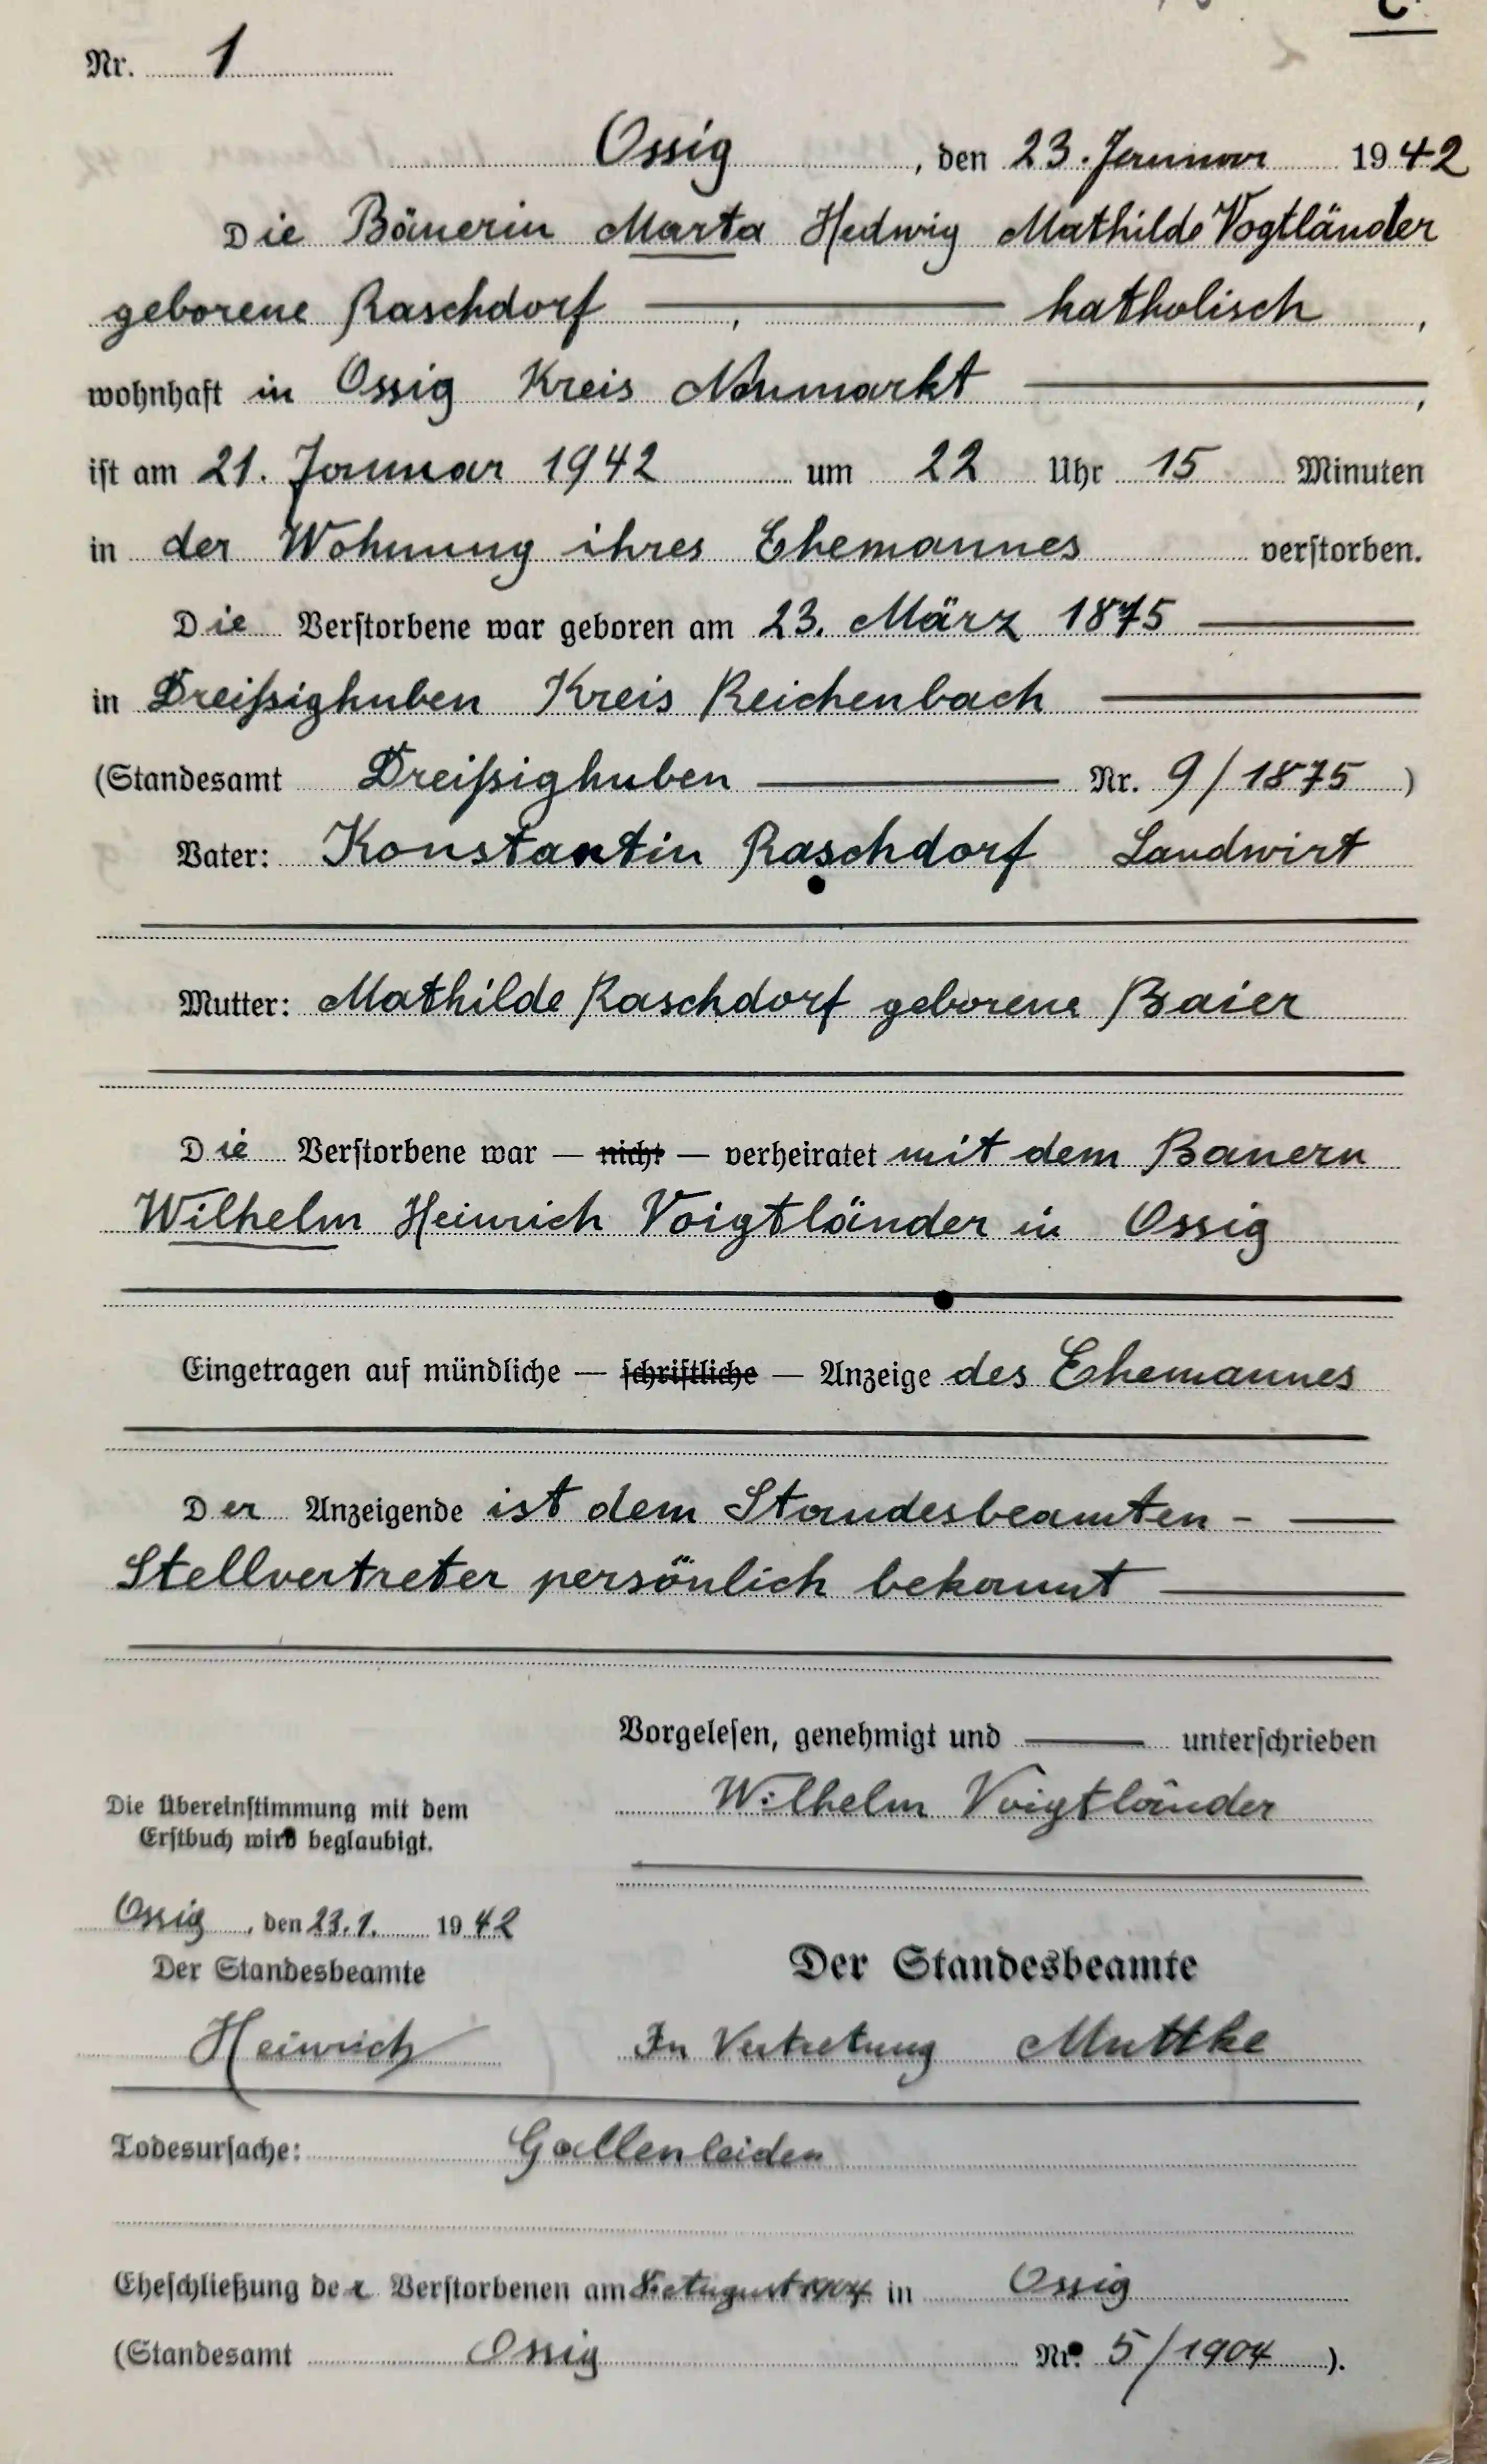 C.
Nr. 1
Ossig, den 23. Januar 1942
Die Bäuerin Marta Hedwig Mathilde Vogtländer
geborene Raschdorf, katholisch,
wohnhaft in Ossig Kreis Neumarkt,
ist am 21. Januar 1942 um 22 Uhr 15 Minuten
in der Wohnung ihres Ehemannes verstorben.
Die Verstorbene war geboren am 23. März 1875
in Dreißighuben Kreis Reichenbach
(Standesamt Dreißighuben Nr. 9/1875)
Vater: Konstantin Raschdorf Landwirt
Mutter: Mathilde Raschdorf geborene Baier
Die Verstorbene war — nicht — verheiratet mit dem Bauern
Wilhelm Heinrich Voigtländer in Ossig
Eingetragen auf mündliche — schriftliche — Anzeige des Ehemannes
Der Anzeigende ist dem Standesbeamten -
Stellvertreter persönlich bekannt
Vorgelesen, genehmigt und unterschrieben
Wilhelm Voigtländer
Die Übereinstimmung mit dem
Erstbuch wird beglaubigt.
Ossig, den 23.1. 1942
Der Standesbeamte
Heinrich
Der Standesbeamte
In Vertretung Muttke
Todesursache: Gallenleiden
Eheschließung der Verstorbenen am August 1904 in Ossig
(Standesamt Ossig Nr. 5/1904).